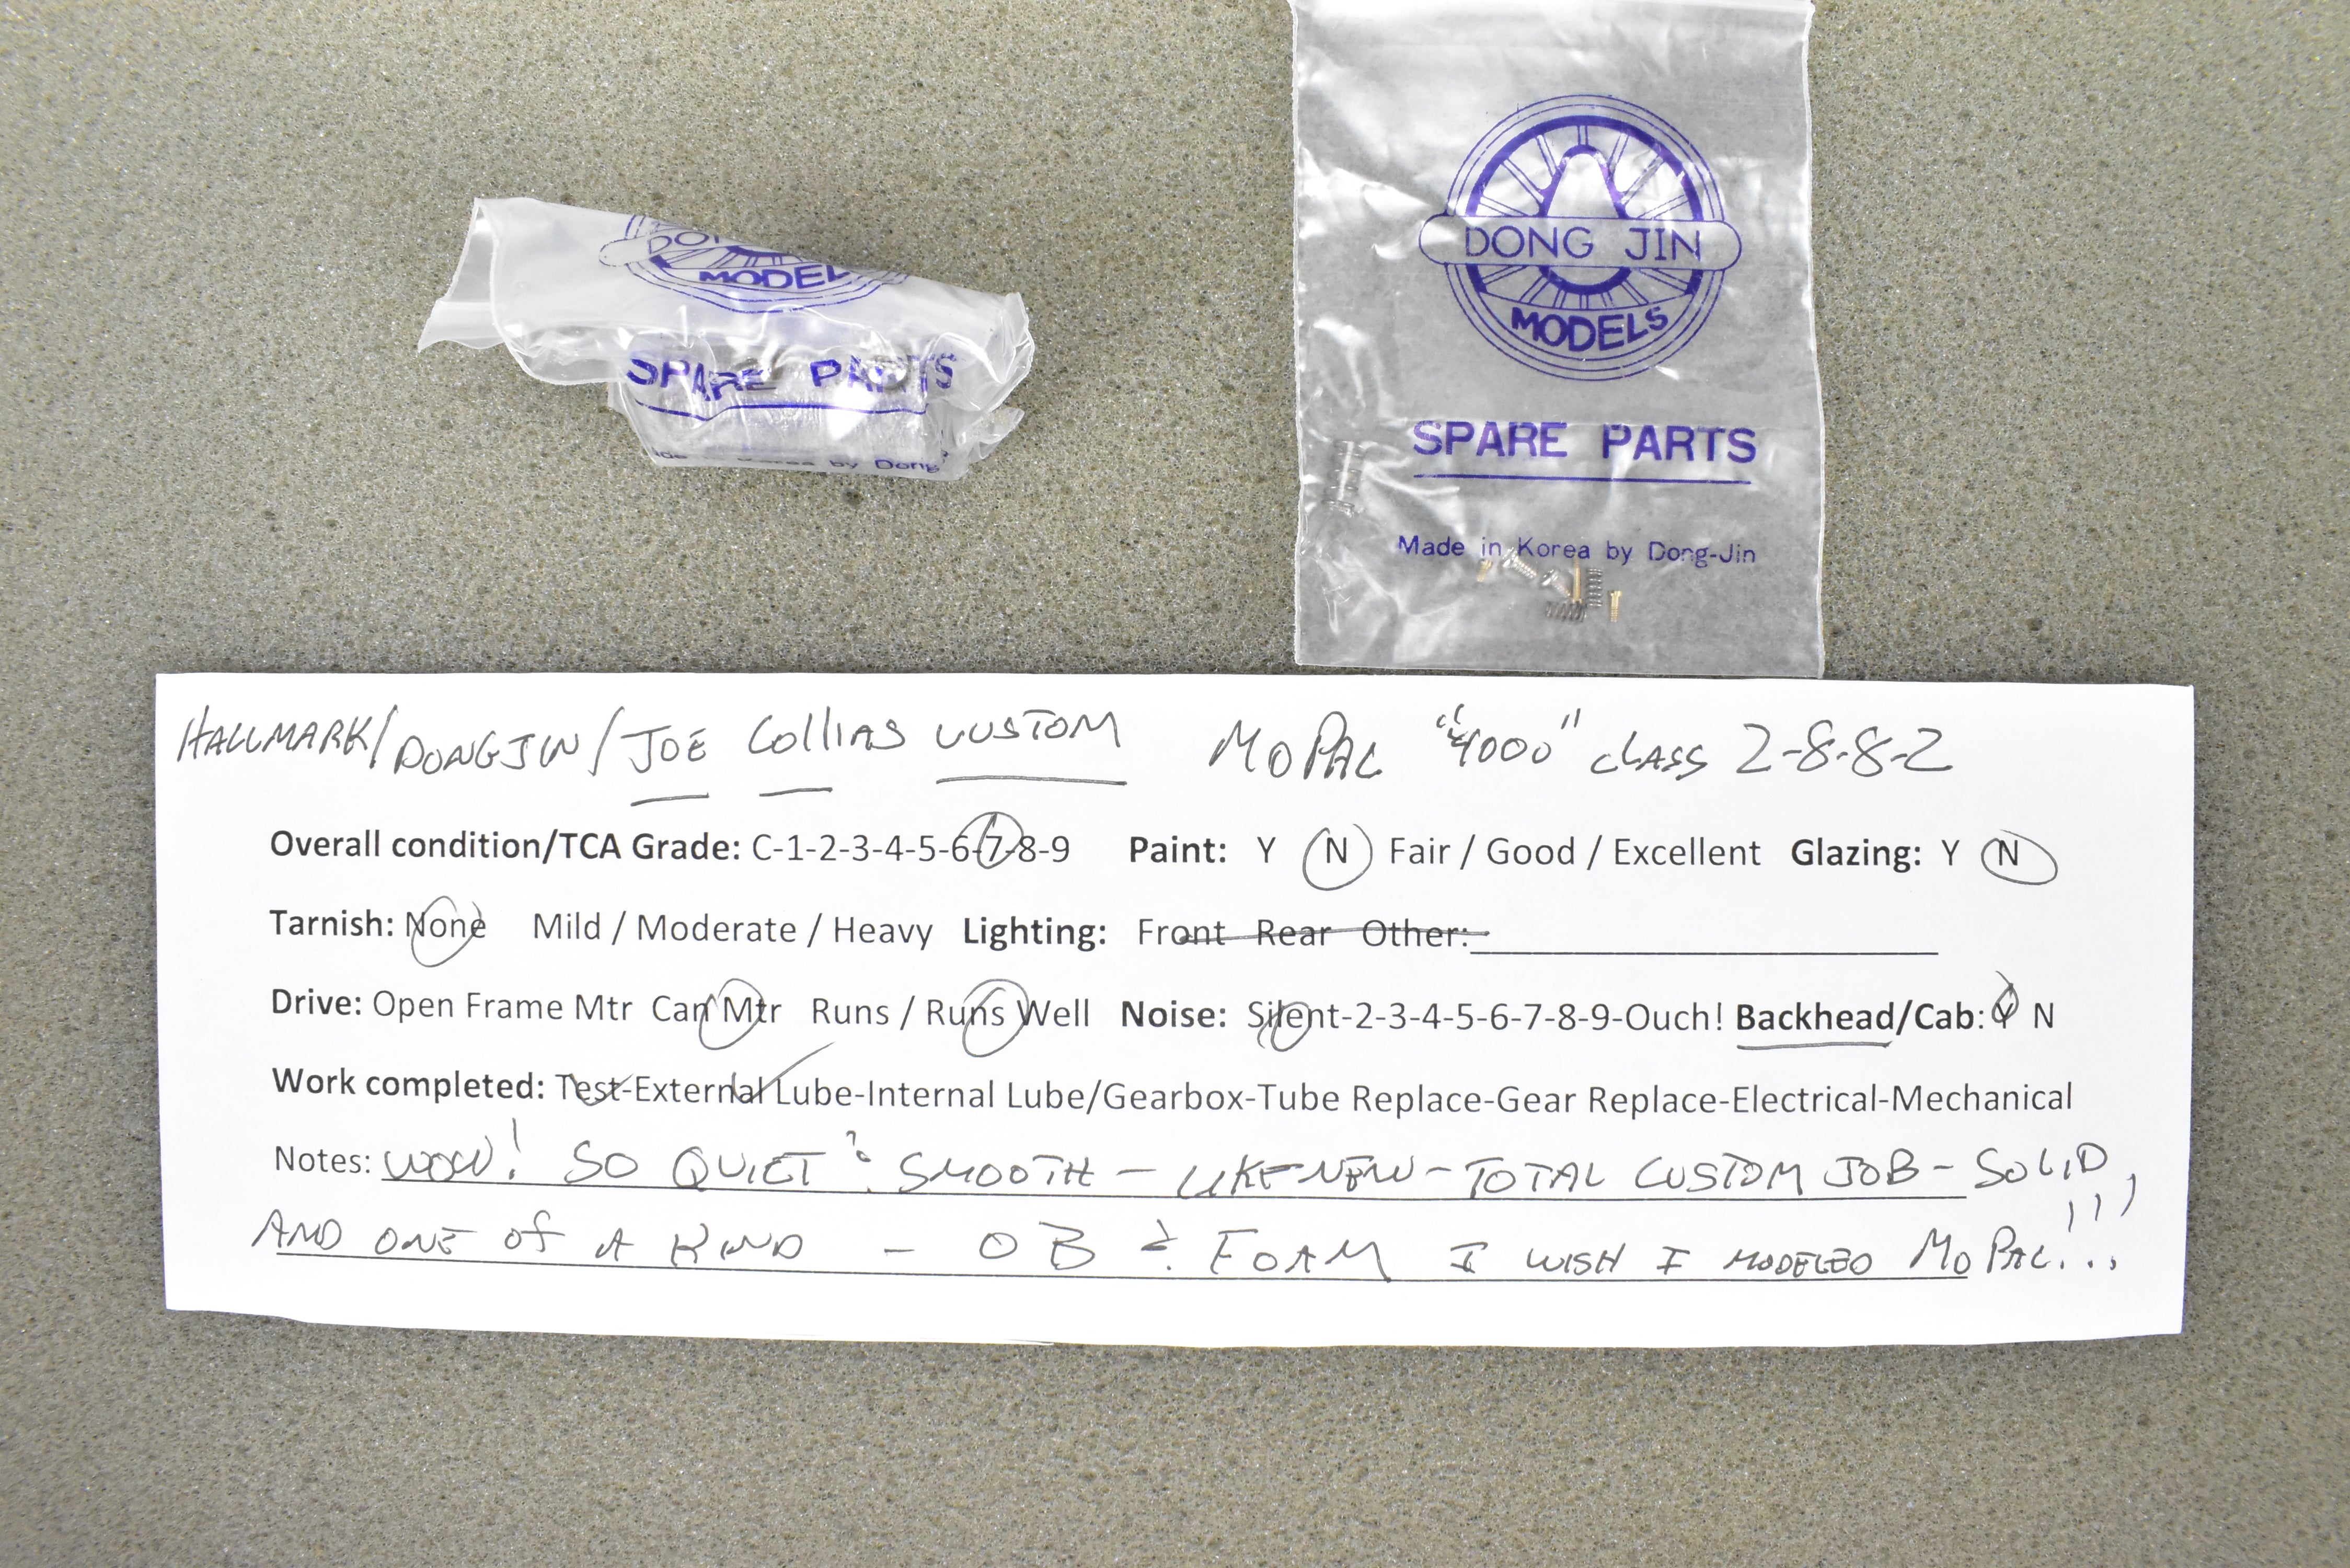 DONG JIN
MODELS
SPARE PARTS
Made in Korea by Dong-Jin
MODEL
SPARE PARTS
Korea by Dong
HALLMARK/DONGJIN/JOE COllIAS CUSTOM MOPAC "4000" CLASS 2-8-8-2
Overall condition/TCA Grade: C-1-2-3-4-5-6-7-8-9 Paint: Y N Fair / Good / Excellent Glazing: Y N
Tarnish: None Mild / Moderate / Heavy Lighting: Front Rear Other:
Drive: Open Frame Mtr Can Mtr Runs / Runs Well Noise: Silent-2-3-4-5-6-7-8-9-Ouch! Backhead/Cab: Y N
Work completed: Test-External Lube-Internal Lube/Gearbox-Tube Replace-Gear Replace-Electrical-Mechanical
Notes: WOW! SO QUIET & SMOOTH - LIKE NEW - TOTAL CUSTOM JOB - SOLID,
AND ONE Of A KIND - OB & FOAM I WISH I MODELED MOPAC!!!...